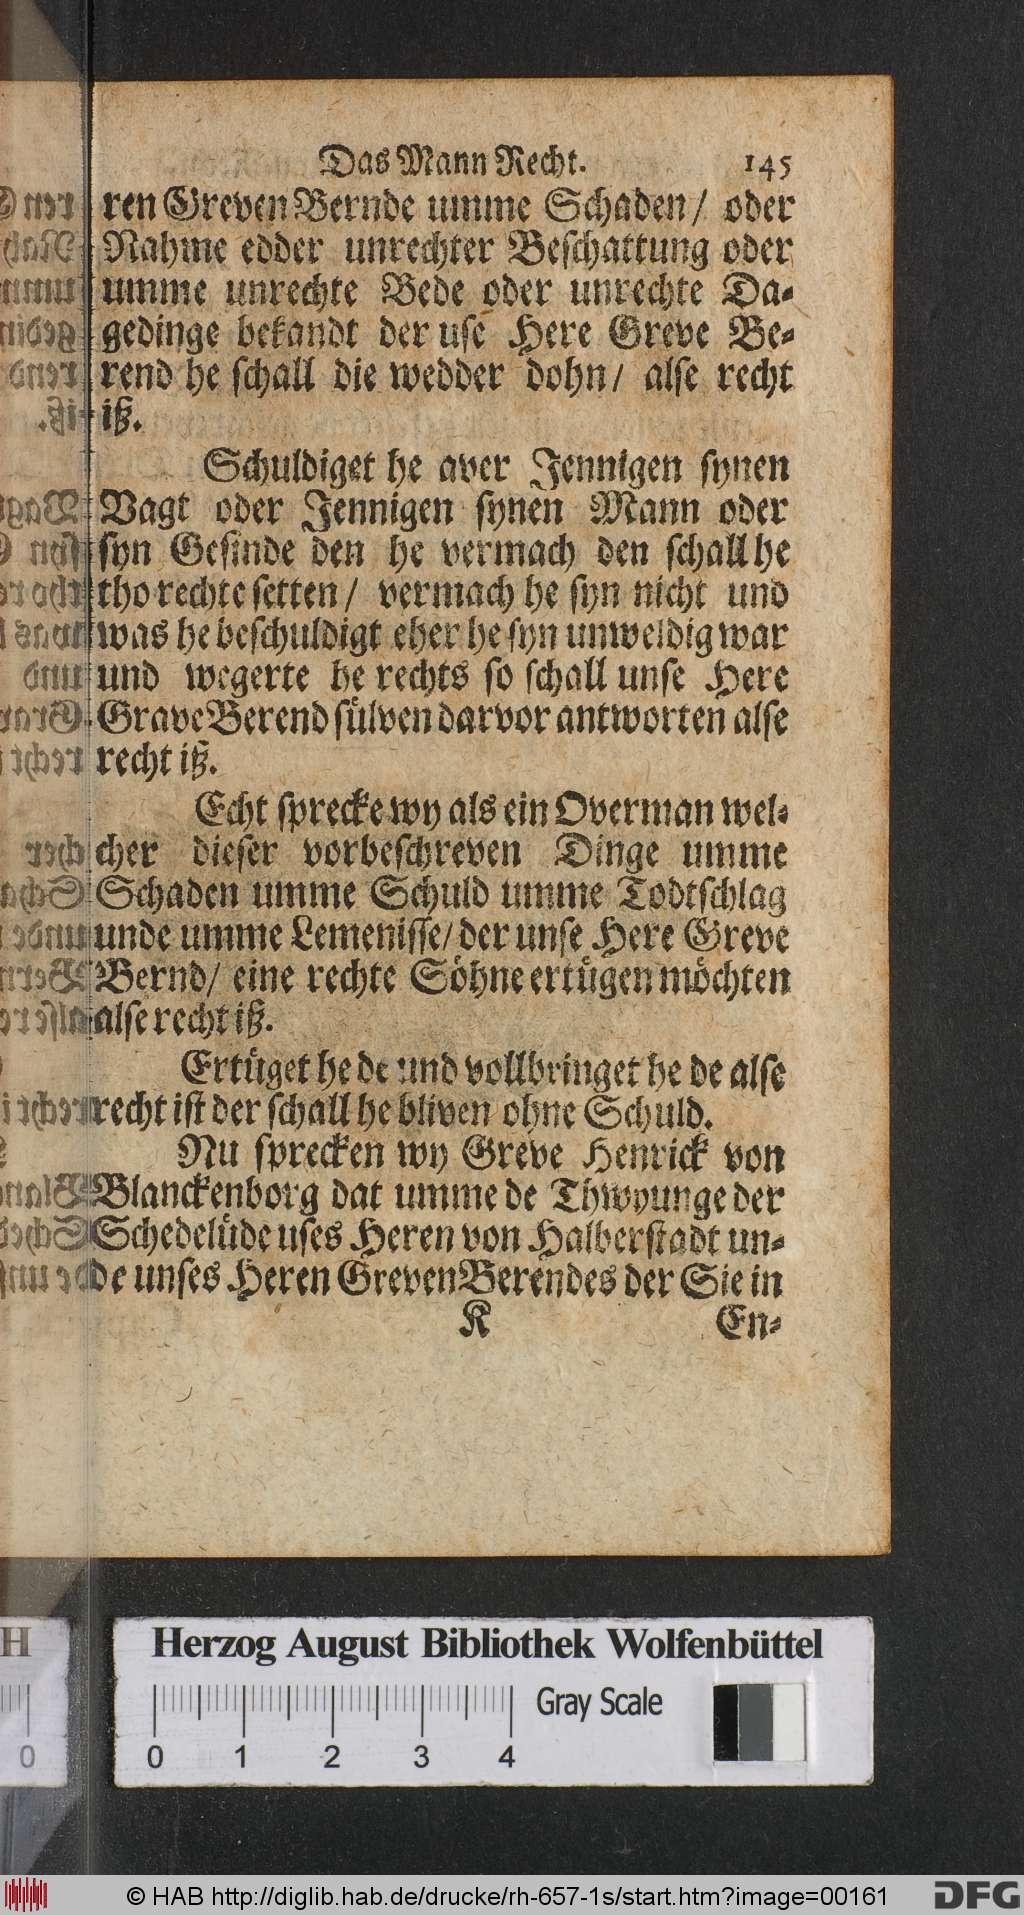 Das Mann Recht. 145
ren Greven Bernde umme Schaden/ oder
Nahme edder unrechter Beschattung oder
umme unrechte Bede oder unrechte Da-
gedinge bekandt der use Here Greve Be-
rend he schall die wedder dohn/ alse recht
iß.
Schuldiget he aver Jennigen synen
Vagt oder Jennigen synen Mann oder
syn Gesinde den he vermach den schall he
tho rechte setten/ vermach he syn nicht und
was he beschuldigt eher he syn unweldig war
und wegerte he rechts so schall unse Here
Grave Berend sülven darvor antworten alse
recht iß.
Echt sprecke wy als ein Overman wel-
cher dieser vorbeschreven Dinge umme
Schaden umme Schuld umme Todtschlag
unde umme Lemenisse/ der unse Here Greve
Bernd/ eine rechte Söhne ertügen möchten
alse recht iß.
Ertüget he de und vollbringet he de alse
recht ist der schall he bliven ohne Schuld.
Nu sprecken wy Greve Henrick von
Blanckenborg dat umme de Thwyunge der
Schedelüde uses Heren von Halberstadt un-
de unses Heren Greven Berendes der Sie in
K En-
H
Herzog August Bibliothek Wolfenbüttel
Gray Scale
0 0 1 2 3 4
© HAB http://diglib.hab.de/drucke/rh-657-1s/start.htm?image=00161
DFG